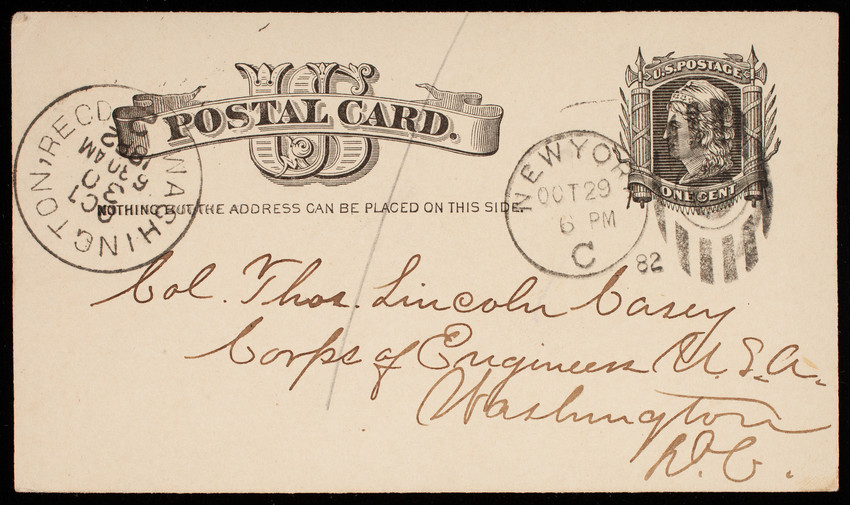 US
POSTAL CARD.
U.S. POSTAGE
ONE CENT
WASHINGTON, RECD.
OCT
30
5 30 AM
1882
NEW YORK
OCT 29
6 PM
C
82
NOTHING BUT THE ADDRESS CAN BE PLACED ON THIS SIDE.
Col. Thos. Lincoln Casey
Corps of Engineers U.S.A.
Washington
D.C.